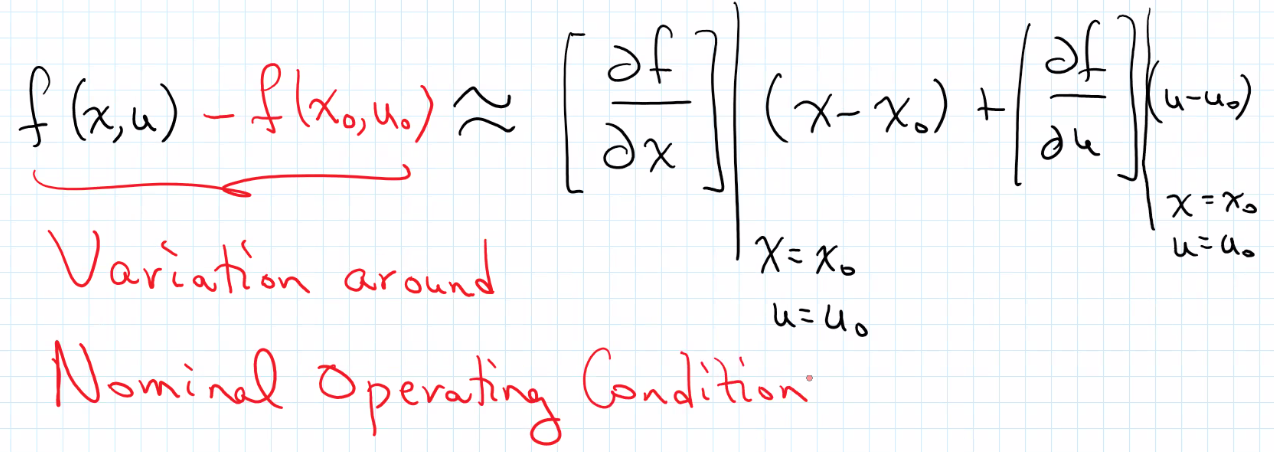 f(x,u) - f(x₀,u₀) ≈ [∂f/∂x]| (x-x₀) + [∂f/∂u]| (u-u₀)
x=x₀ x=x₀
u=u₀ u=u₀
Variation around
Nominal Operating Condition